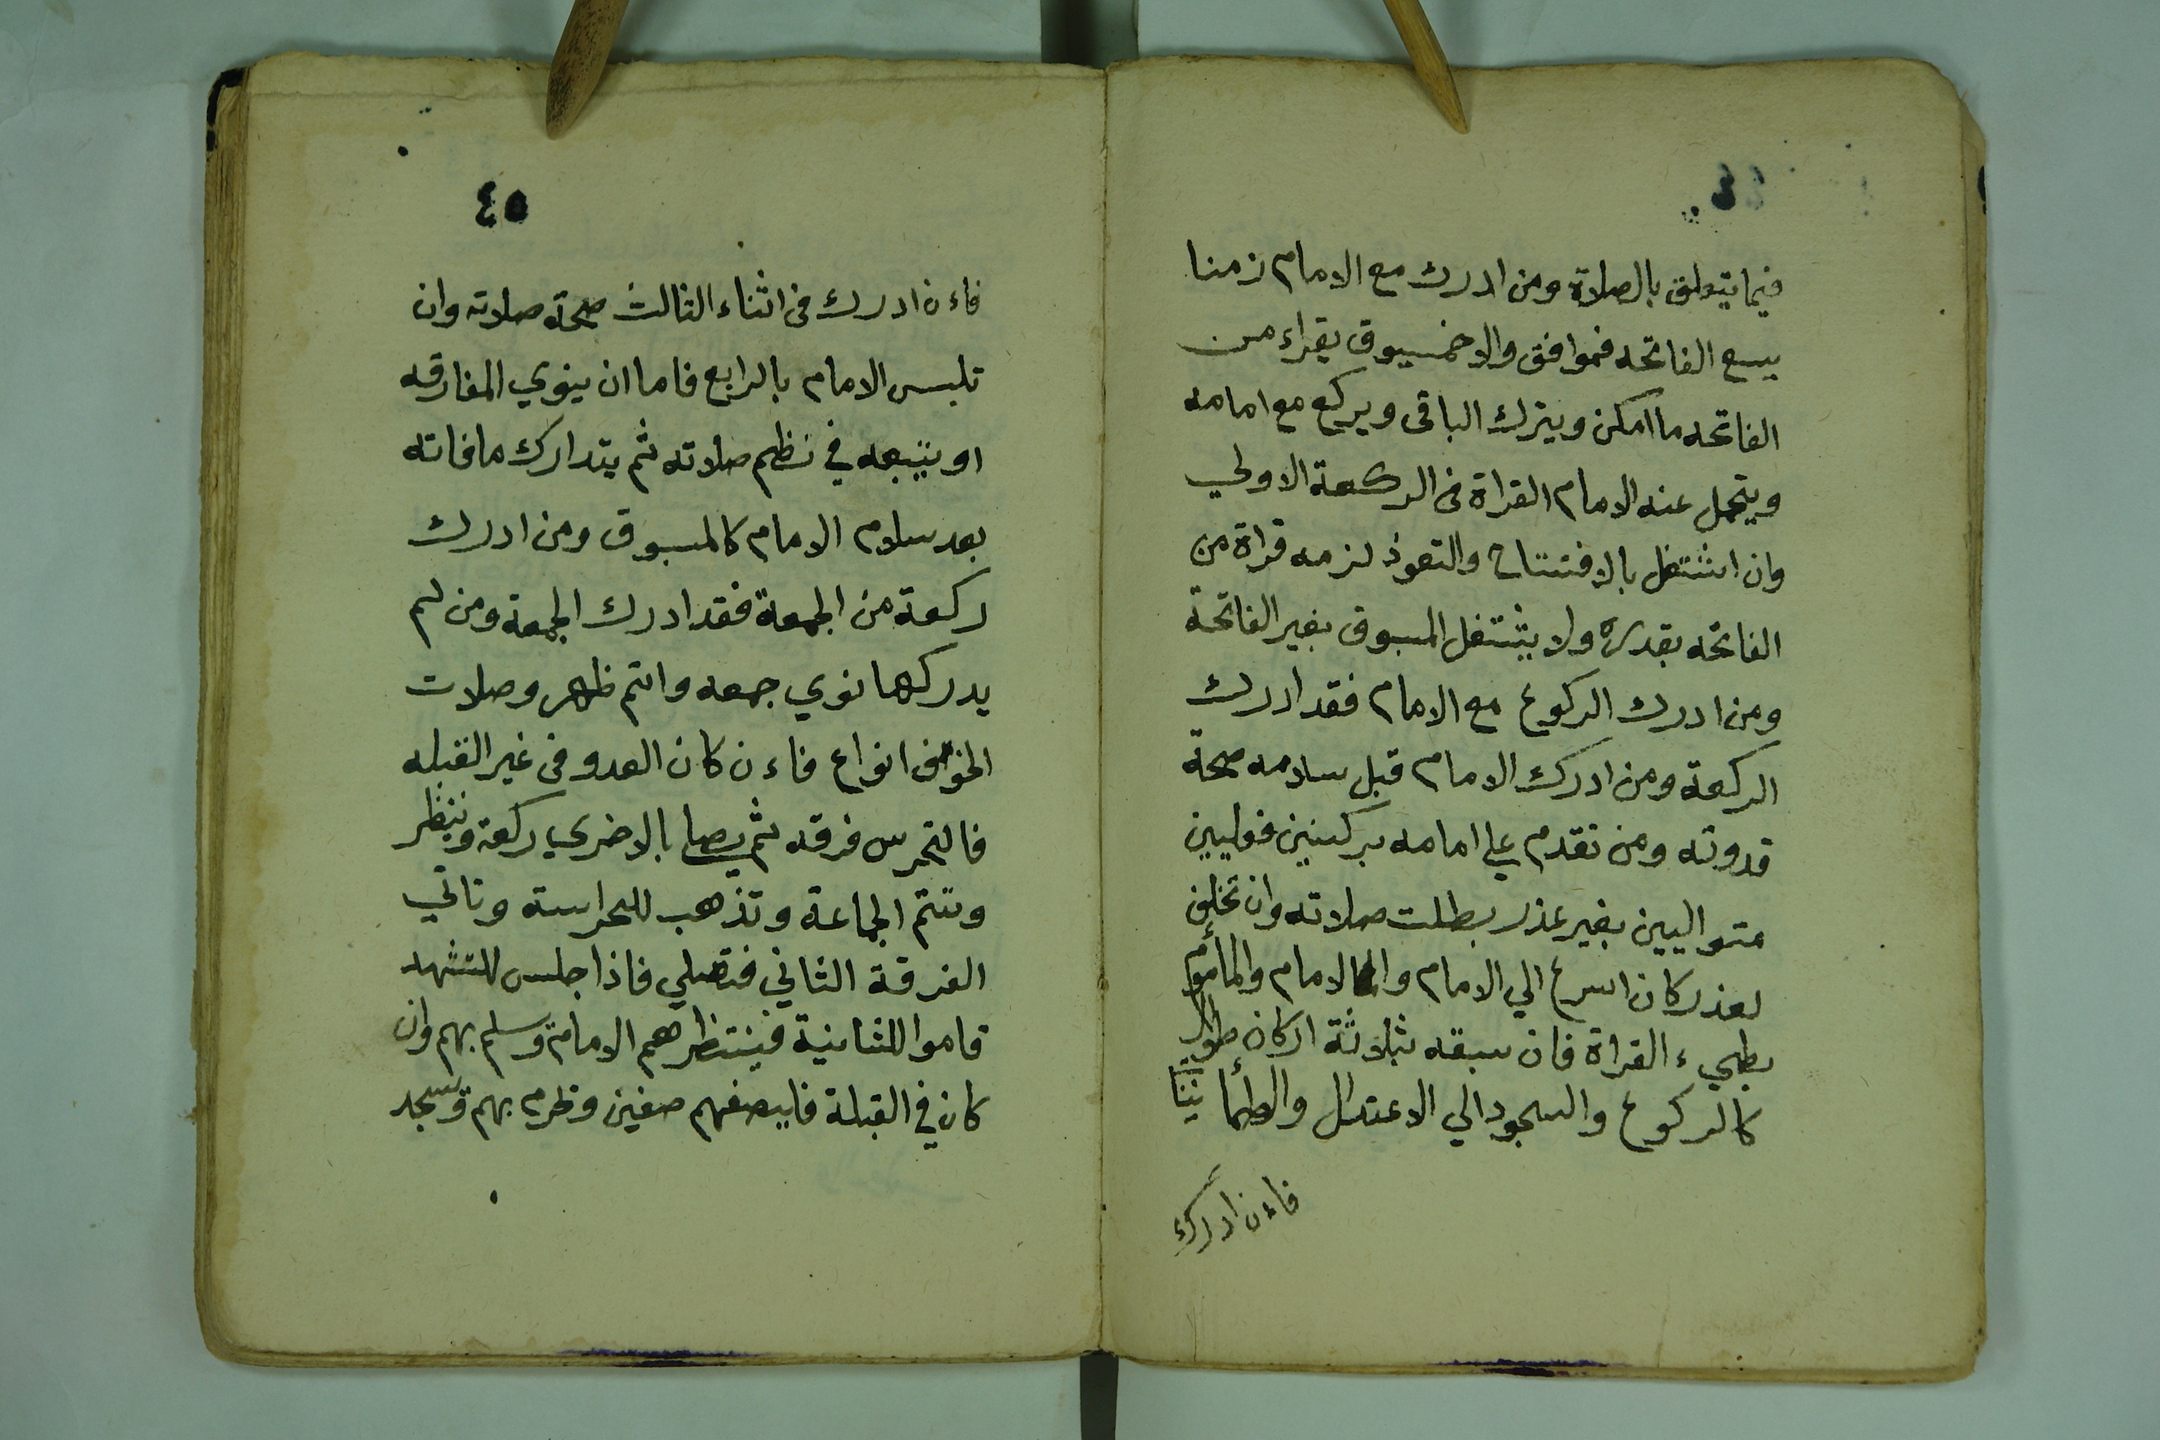 ٤٤
فيما يتعلق بالصلاة ومن ادرك مع الامام زمنا
يسع الفاتحه فموافق والا فمسبوق يقراء من
الفاتحه ما امكن ويترك الباقى ويركع مع امامه
ويتحمل عنه الامام القراة فى الركعة الاولي
وان اشتغل بالافتتاح والتعوذ لزمه قراة من
الفاتحه بقدره ولا يشتغل المسبوق بغير الفاتحة
ومن ادرك الركوع مع الامام فقد ادرك
الركعة ومن ادرك الامام قبل سلامه صحة
قدوته ومن تقدم علي امامه بركنين فعليين
متواليين بغير عذر بطلت صلاته وان تخلف
لعذر كان اسرع الي الامام والامام والمأموم
بطيء القراة فان سبقه بثلاثة اركان طوال
كالركوع والسجود الي الاعتدال والطمأ نينا
فاءن ادرك
٤٥
فاءن ادرك فى اثناء الثالث صحة صلاته وان
تلبس الامام بالرابع فاما ان ينوي المفارقه
او يتبعه في نظم صلاته ثم يتدارك ما فاته
بعد سلام الامام كالمسبوق ومن ادرك
ركعة من الجمعة فقد ادرك الجمعة ومن لم
يدركها نوي جمعه واتم ظهر وصلات
الخوف انواع فاءن كان العدو فى غير القبله
فالتحرس فرقه ثم يصل بالاخري ركعة وينتظر
وتتم الجماعة وتذهب للحراسة وتاتي
الفرقة الثاني فتصلي فاذا جلس للتشهد
قاموا للثانية فينتظرهم الامام وسلم بهم وان
كان في القبلة فاليصفهم صفين وحرم بهم وسجد